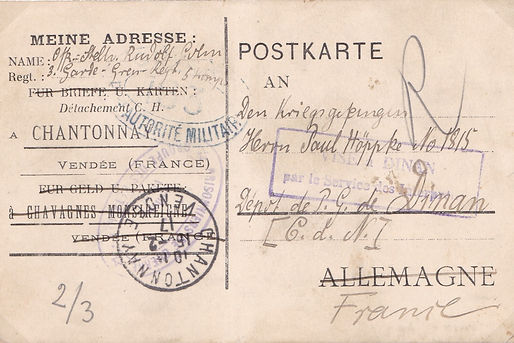 MEINE ADRESSE:
NAME: Offz.-Stellv. Rudolf
Regt.: 3. Garde-Gren.-Regt.
FUR BRIEFE U. KARTEN:
Détachement C. H.
A CHANTONNAY
VENDÉE (FRANCE)
FUR GELD U. PAKETE:
à CHAVAGNES
VENDÉE (FRANCE)
AUTORITÉ MILITAIRE
CHANTONNAY VENDÉE
16-2
17
2/3
POSTKARTE
AN
Den Kriegsgefangenen
Herrn Paul Höppke No 1815
VISÉ A DINAN
par le Service des
Dépôt de P. G. de Dinan
[C. d. N.]
ALLEMAGNE
France